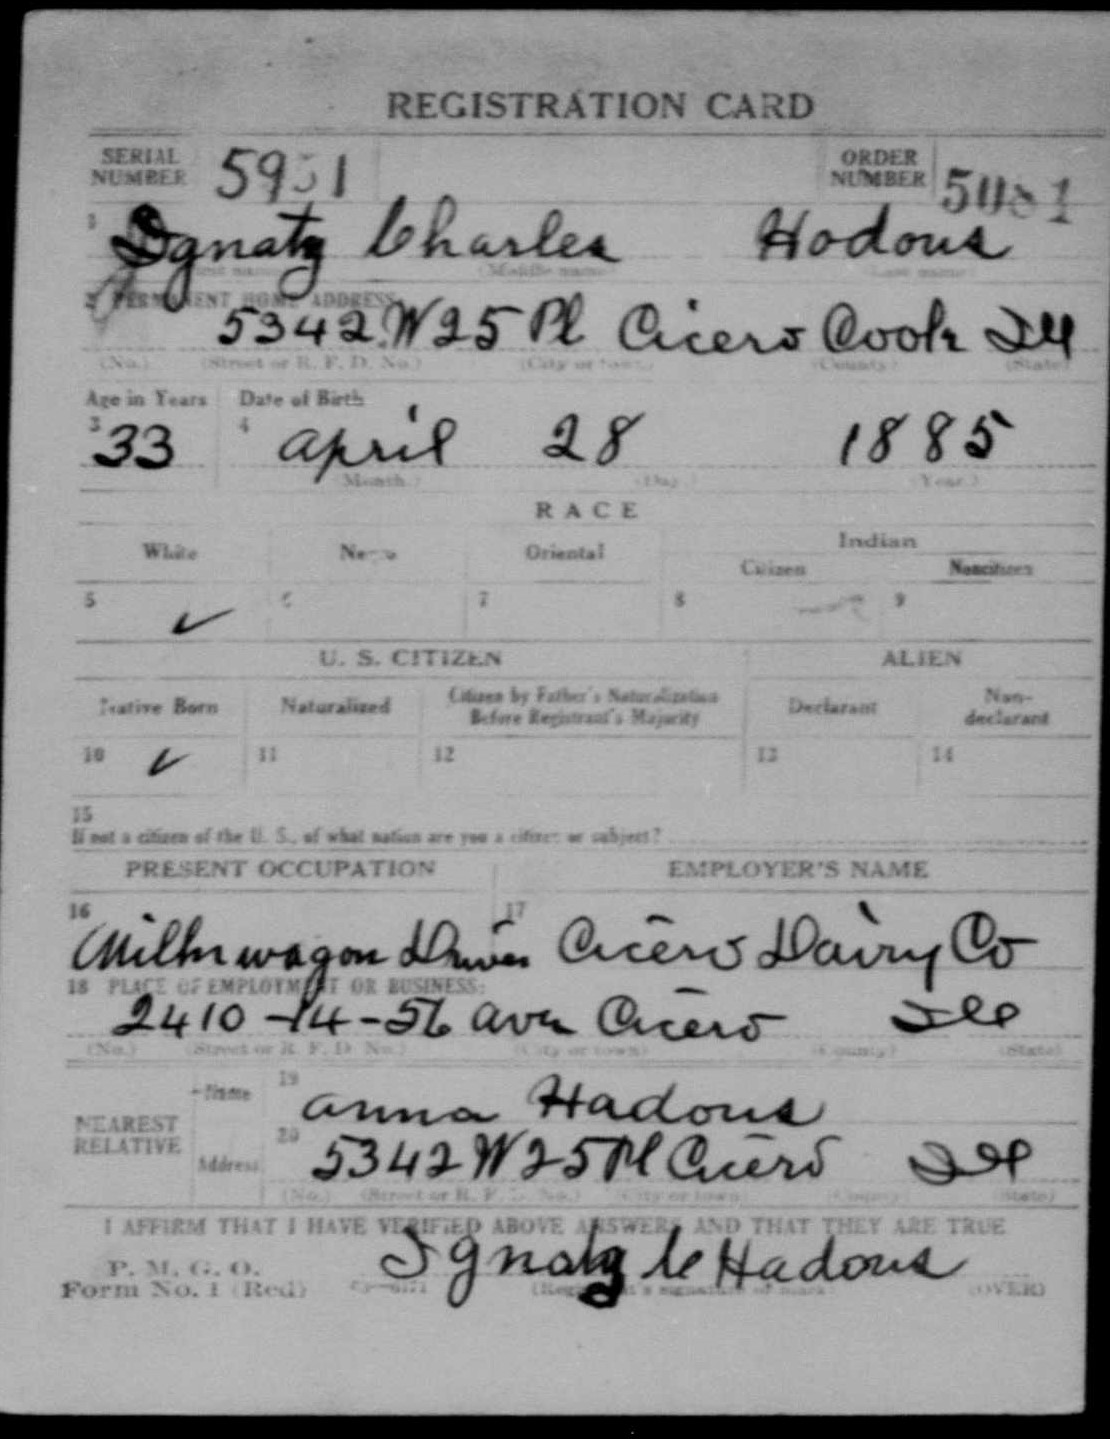 REGISTRATION CARD
SERIAL NUMBER 5951 ORDER NUMBER 5081
1 Ignatz Charles Hodous
(First name) (Middle name) (Last name)
2 PERMANENT HOME ADDRESS
5342 W 25 Pl Cicero Cook Ill
(No.) (Street or R. F. D. No.) (City or town) (County) (State)
Age in Years Date of Birth
3 33 4 April 28 1885
(Month.) (Day.) (Year.)
RACE
White Negro Oriental Indian
Citizen Noncitizen
5 ✓ 6 7 8 9
U. S. CITIZEN ALIEN
Native Born Naturalized Citizen by Father's Naturalization Before Registrant's Majority Declarant Non-declarant
10 ✓ 11 12 13 14
15
If not a citizen of the U. S., of what nation are you a citizen or subject?
PRESENT OCCUPATION EMPLOYER'S NAME
16 Milk wagon Driver 17 Cicero Dairy Co
18 PLACE OF EMPLOYMENT OR BUSINESS:
2410-14-56 Ave Cicero Ill
(No.) (Street or R. F. D. No.) (City or town) (County) (State)
NEAREST RELATIVE
Name 19 Anna Hadous
Address 20 5342 W 25 Pl Cicero Ill
(No.) (Street or R. F. D. No.) (City or town) (County) (State)
I AFFIRM THAT I HAVE VERIFIED ABOVE ANSWERS AND THAT THEY ARE TRUE
P. M. G. O.
Form No. 1 (Red) Ignatz C Hadous
(Registrant's signature or mark) (OVER)